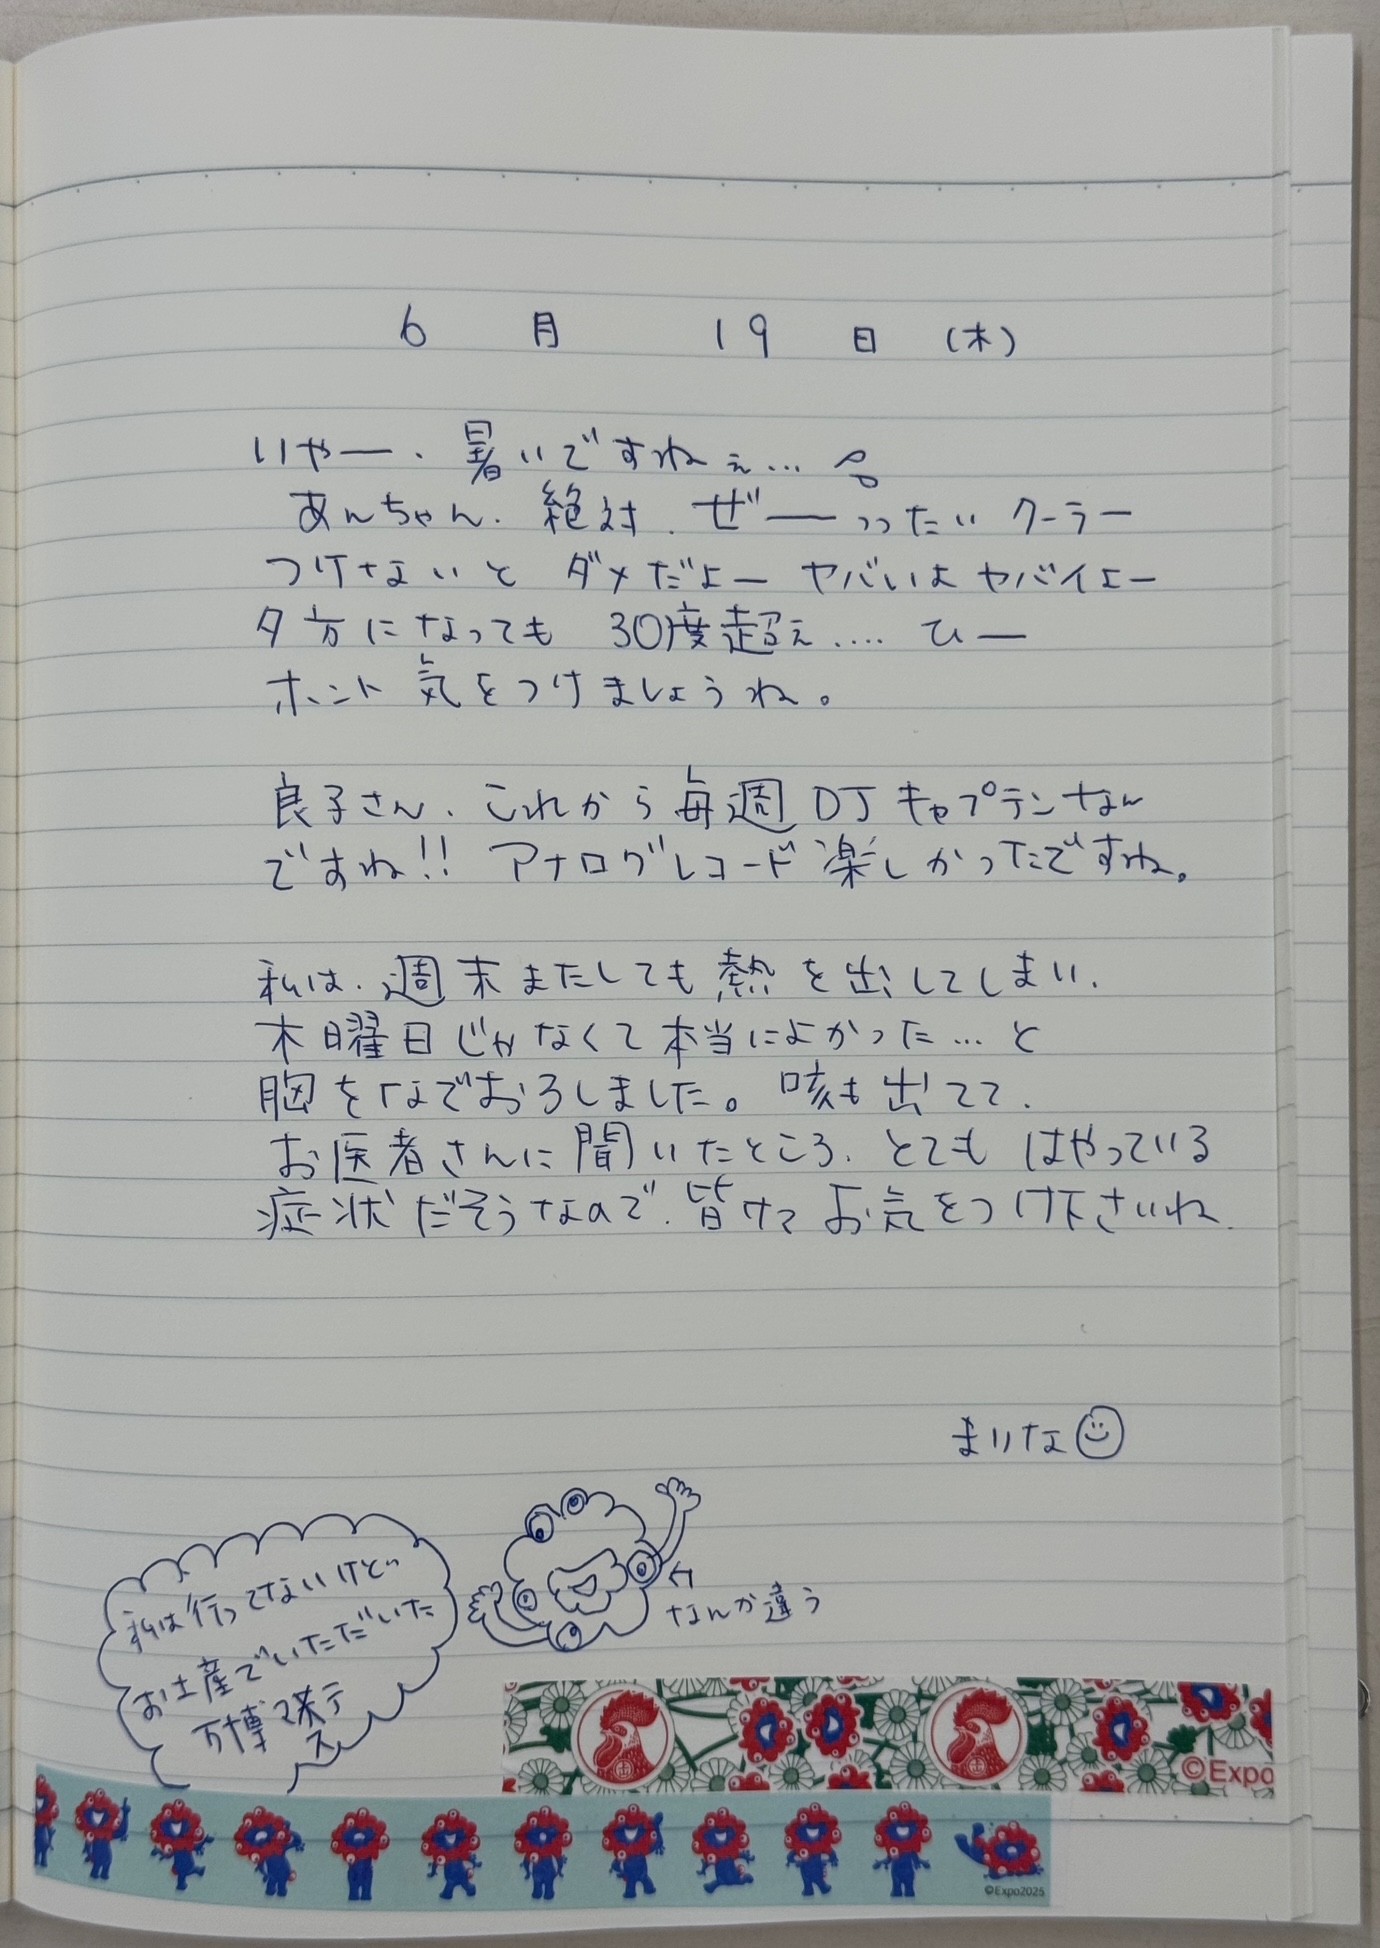 6月 19日 (木)
いやー、暑いですねぇ…
あんちゃん、絶対、ぜーーったい クーラー
つけないと ダメだよー ヤバいよ ヤバイよー
夕方になっても 30度超え…. ひー
ホント 気をつけましょうね。
良子さん、これから毎週DJキャプテンなん
ですね!! アナログレコード楽しかったですね。
私は、週末またしても熱を出してしまい、
木曜日じゃなくて本当によかった…と
胸をなでおろしました。咳も出てて、
お医者さんに聞いたところ、とてもはやっている
症状だそうなので、皆サマお気をつけ下さいね.
まりな
私は行ってないけど
お土産でいただいた
万博マステ
なんか違う
©Expo
©Expo2025